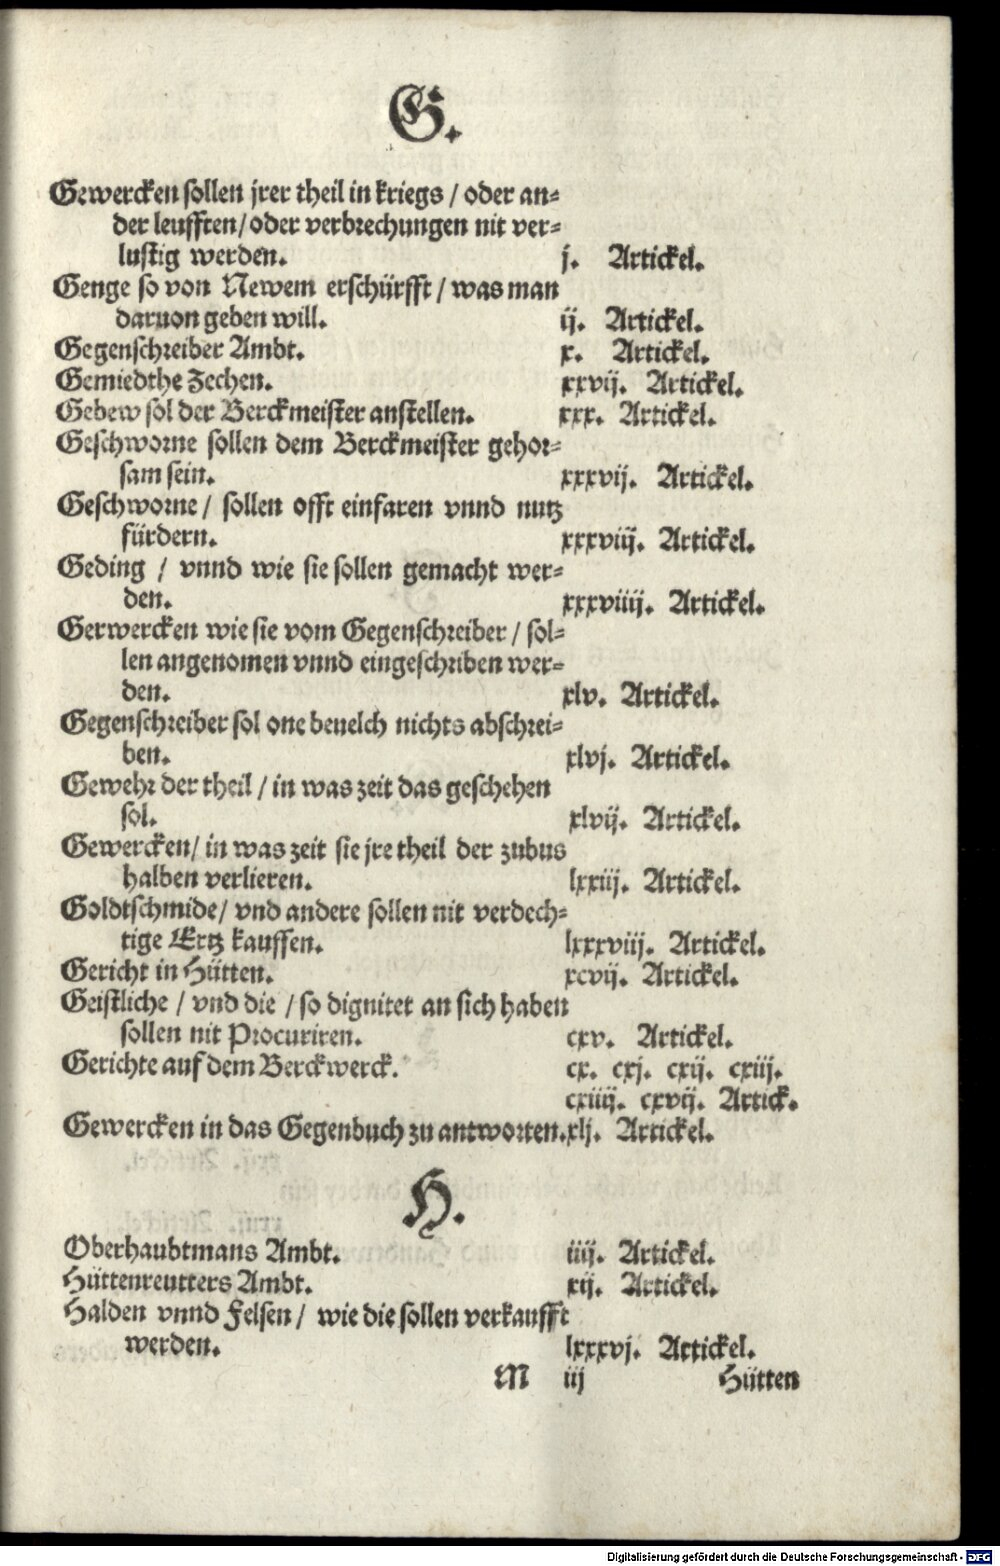 G.
Gewercken sollen jrer theil in kriegs / oder an=
der leufften / oder verbrechungen nit ver=
lustig werden. j. Artickel.
Genge so von Newem erschürfft / was man
daruon geben will. ij. Artickel.
Gegenschreiber Ambt. x. Artickel.
Gemiedthe Zechen. xxvij. Artickel.
Gebew sol der Berckmeister anstellen. xxx. Artickel.
Geschworne sollen dem Berckmeister gehor=
sam sein. xxxvij. Artickel.
Geschworne / sollen offt einfaren vnnd nutz
fürdern. xxxviij. Artickel.
Geding / vnnd wie sie sollen gemacht wer=
den. xxxviiij. Artickel.
Gerwercken wie sie vom Gegenschreiber / sol=
len angenomen vnnd eingeschriben wer=
den. xlv. Artickel.
Gegenschreiber sol one beuelch nichts abschrei=
ben. xlvj. Artickel.
Gewehr der theil / in was zeit das geschehen
sol. xlvij. Artickel.
Gewercken / in was zeit sie jre theil der zubus
halben verlieren. lxxiij. Artickel.
Goldtschmide / vnd andere sollen nit verdech=
tige Ertz kauffen. lxxxviij. Artickel.
Gericht in Hütten. xcvij. Artickel.
Geistliche / vnd die / so dignitet an sich haben
sollen nit Procuriren. cxv. Artickel.
Gerichte auf dem Berckwerck. cx. cxj. cxij. cxiij.
cxiiij. cxvij. Artick.
Gewercken in das Gegenbuch zu antworten. xlj. Artickel.
H.
Oberhaubtmans Ambt. iiij. Artickel.
Hüttenreutters Ambt. xij. Artickel.
Halden vnnd Felsen / wie die sollen verkaufft
werden. lxxxvj. Artickel.
M iij Hütten
Digitalisierung gefördert durch die Deutsche Forschungsgemeinschaft - DFG